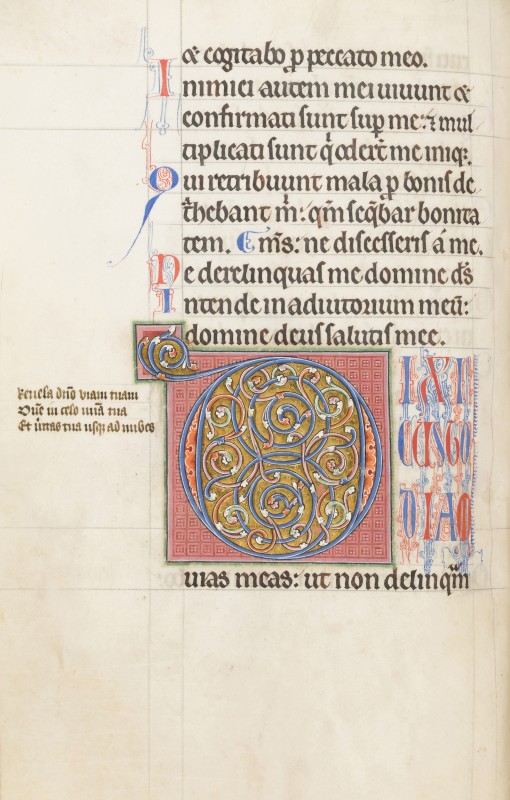 & cogitabo p peccato meo.
Inimici autem mei uiuunt &
confirmati sunt sup me: ⁊ mul
tiplicati sunt q̇ oderr̄t me iniq.
Qui retribuunt mala p bonis de
t̄hebant m̄: qm̄ seq̄bar bonita
tem. Em̄s: ne discesseris á me.
Ne derelinquas me domine ds̄
Intende in adiutorium meū:
domine deus salutis mee.
D
IXI
CUSTO
DIAO
Reuela dnō viam tuam
Dn̄e in celo mīa tua
Et ūitas tua usq; ad nubes
uias meas: ut non delinqm̄